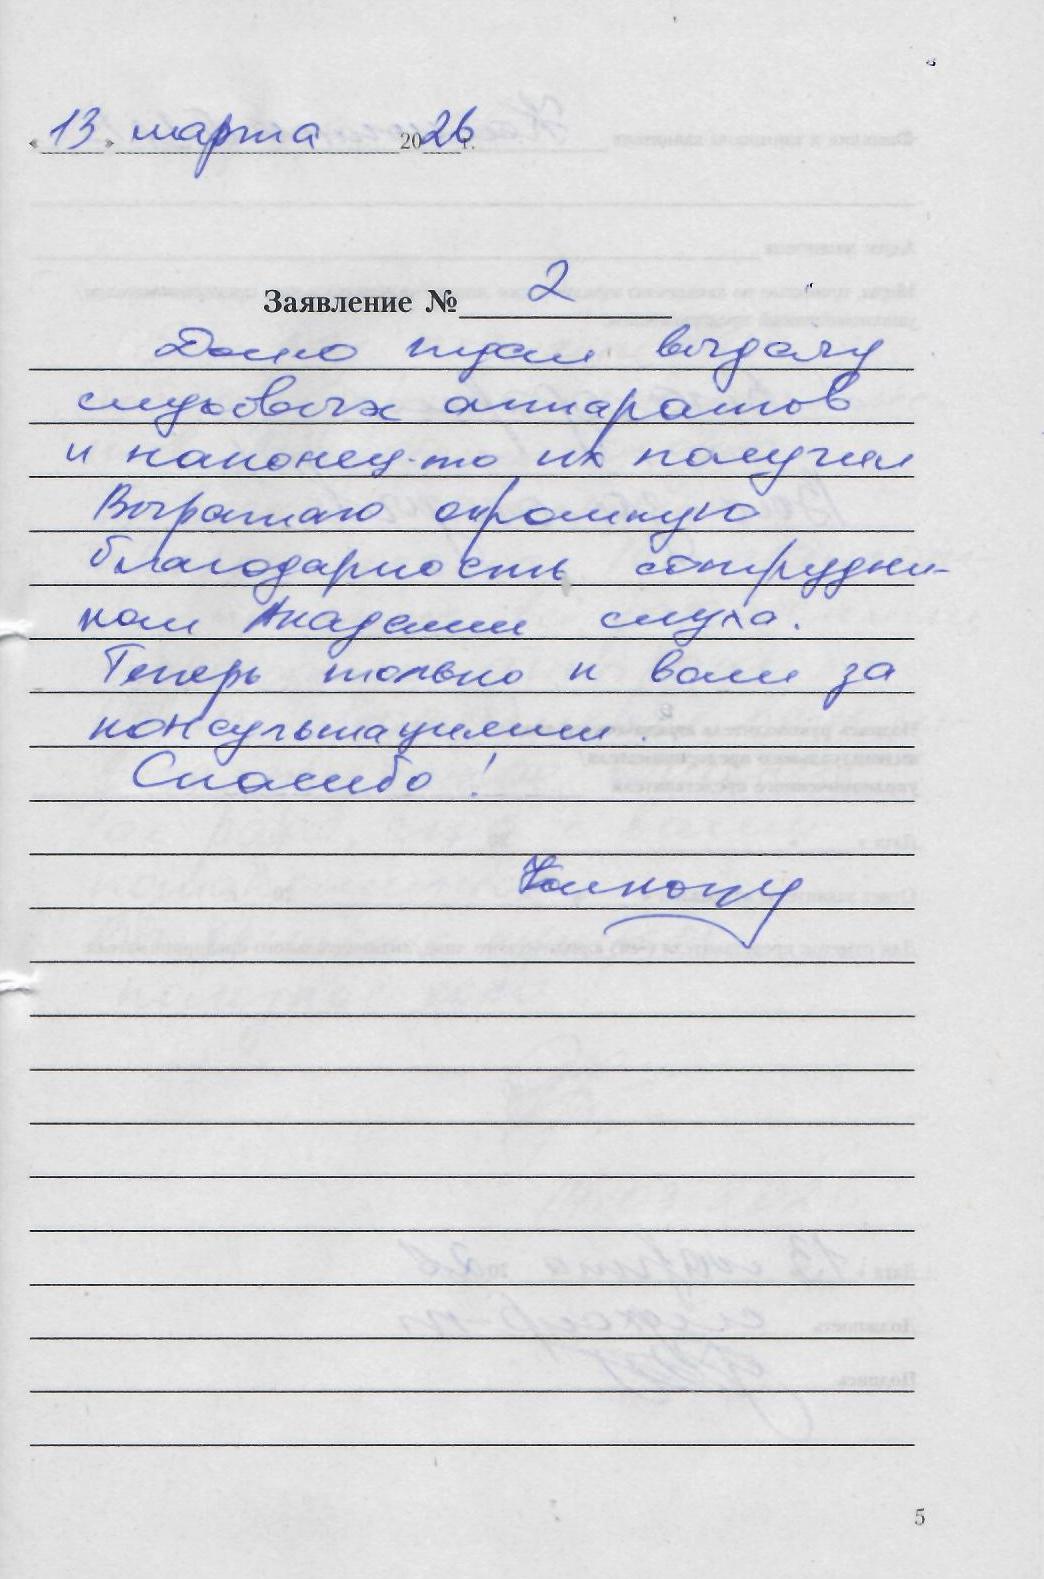 « 13 » марта 2026 г.
Заявление № 2
Долго ждал выдачу
слуховых аппаратов
и наконец-то их получил
Выражаю огромную
благодарность сотрудни-
кам Академии слуха.
Теперь только к вам за
консультациями.
Спасибо!
5